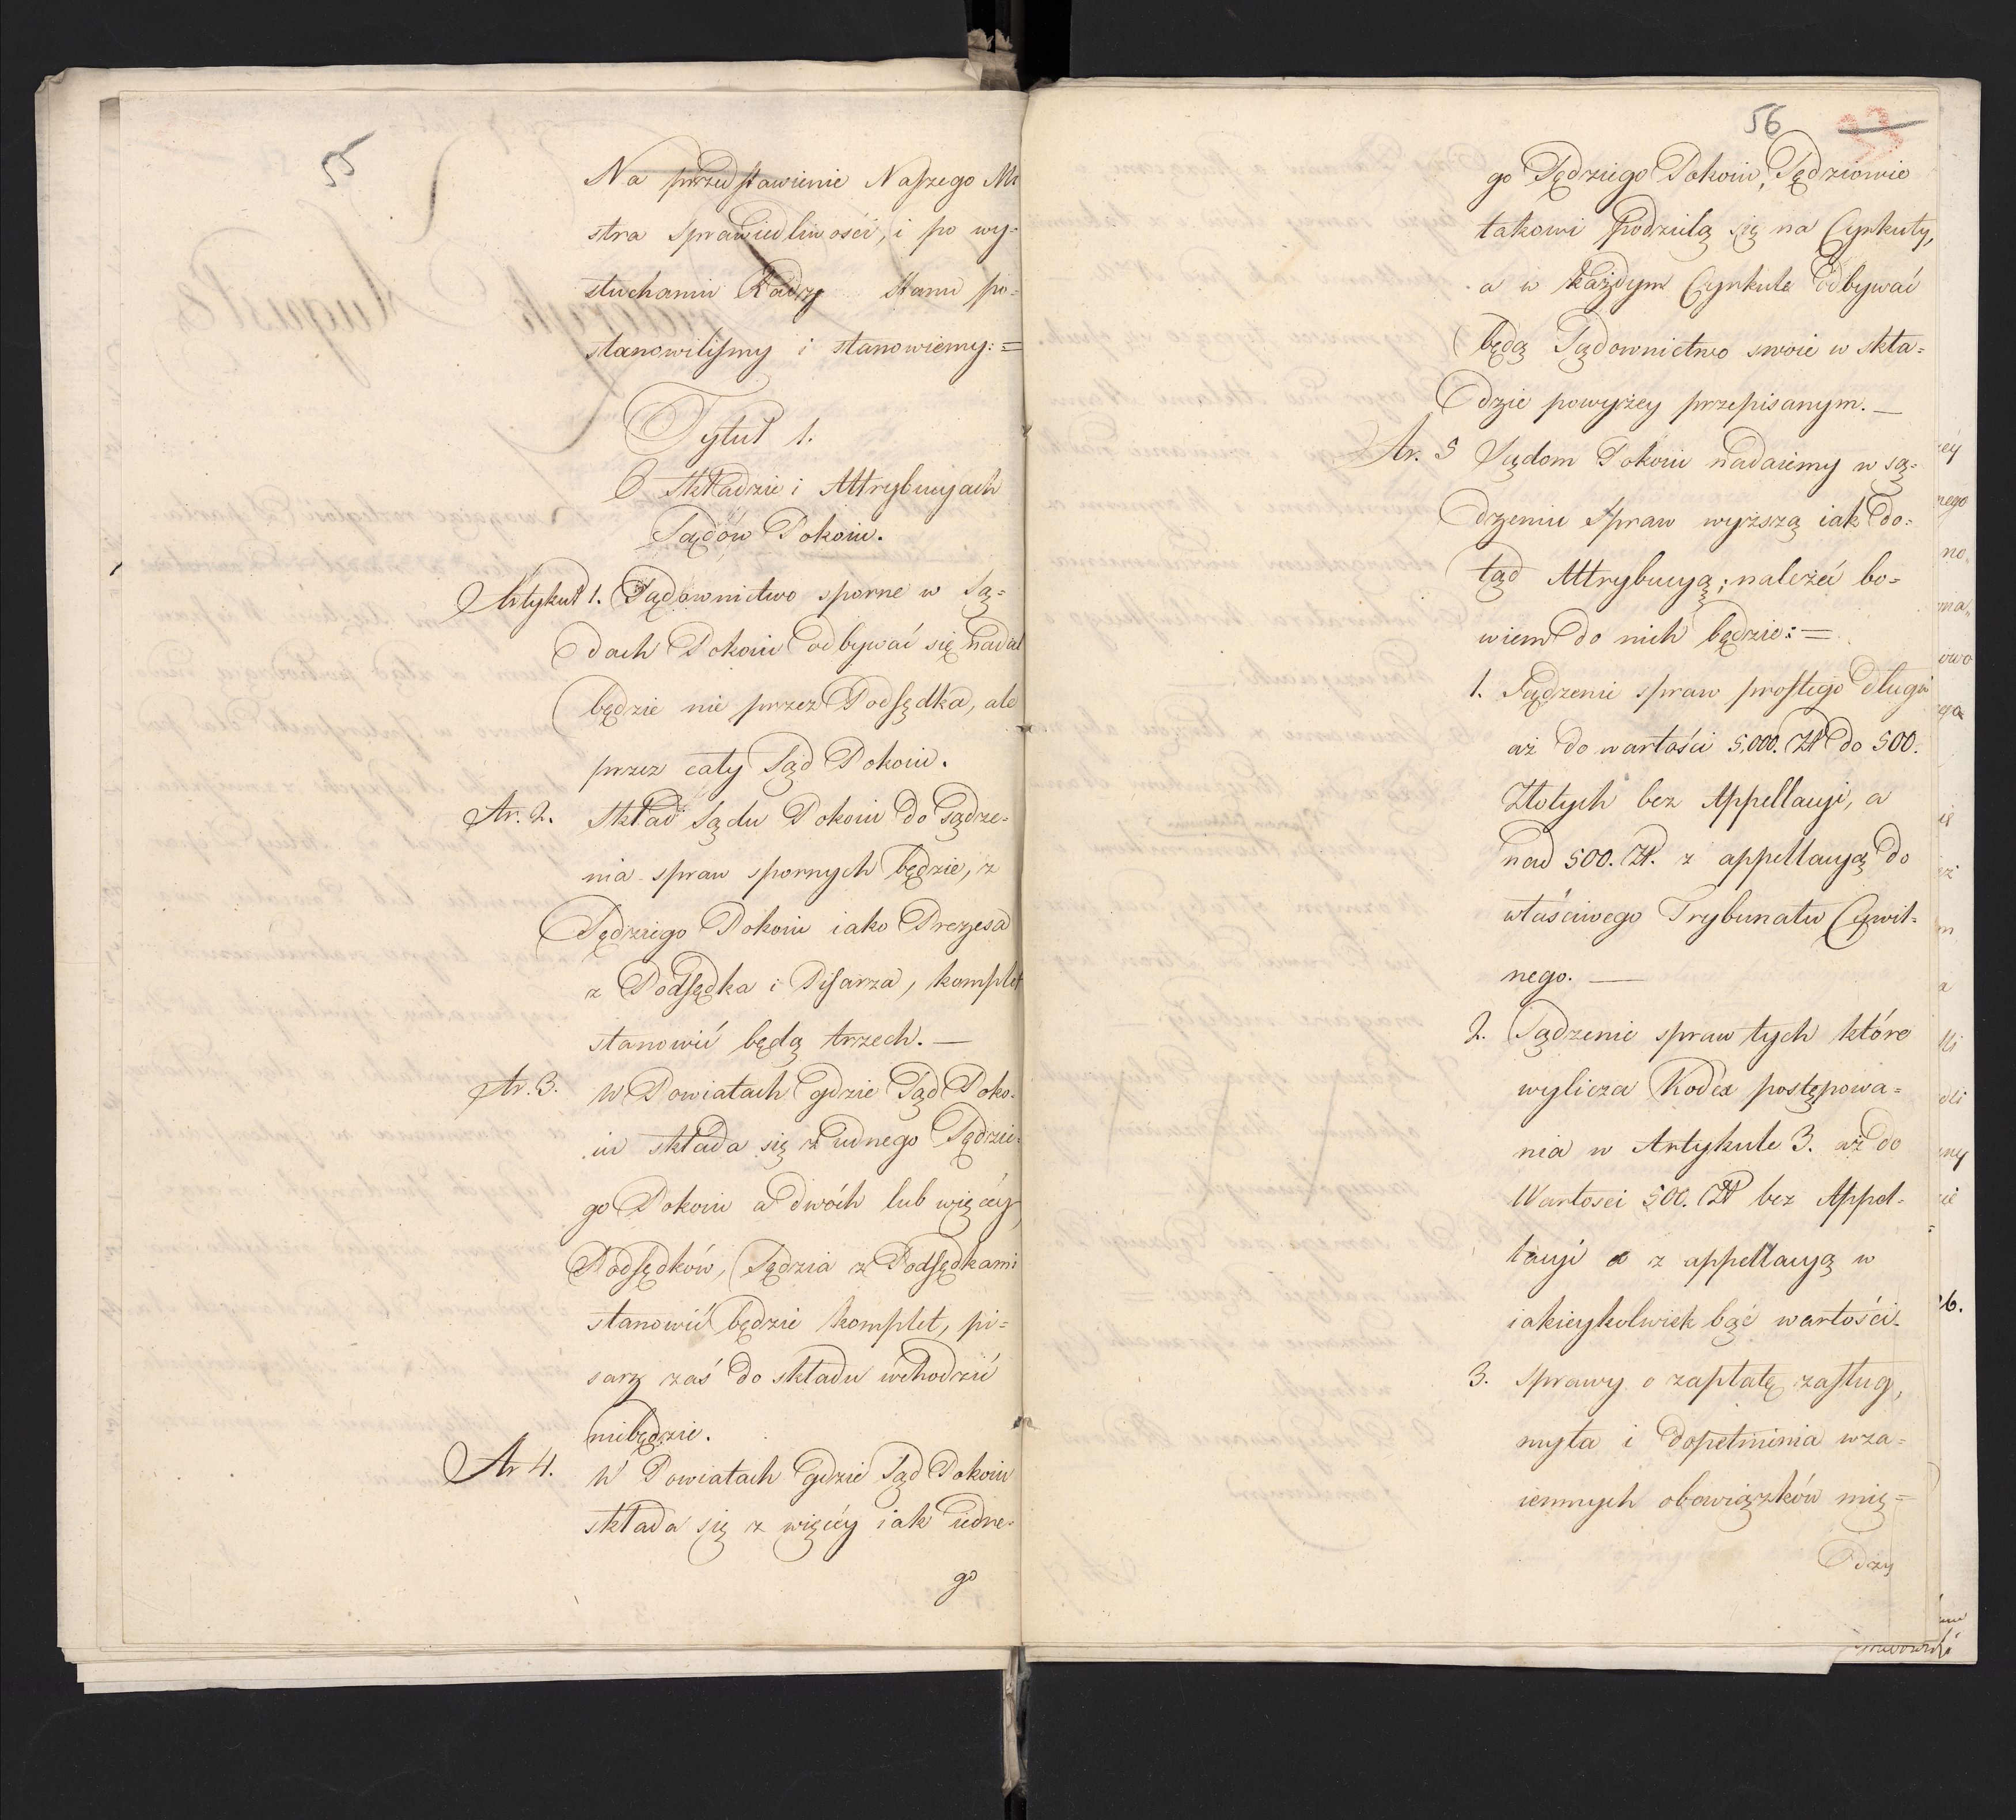 55
Na przedstawienie Naszego Mi
stra sprawiedliwości, i po wy=
słuchaniu Radzy Stanu po=
stanowiliśmy i stanowiemy:=
Tytuł 1.
O składzie i Attrybucyjach
Sądów Pokoiu.
Artykuł 1. Sądownictwo sporne w Są=
dach Pokoiu odbywać się nadal
będzie nie przez Podsędka, ale
przez cały Sąd Pokoiu.
Ar. 2. Skład Sądu Pokoiu do Sądze=
nia spraw spornych będzie, z
Sędziego Pokoiu iako Prezesa
z Podsędka i Pisarza, komplet
stanowić będą trzech. —
Ar. 3. W Powiatach gdzie Sąd Poko=
iu składa się z iednego Sędzie=
go Pokoiu a dwóch lub więcéy
Podsędków, Sędzia z Podsędkami
stanowić będzie komplet, pi=
sarz zaś do składu wchodzić
niebędzie.
Ar 4. W Powiatach gdzie Sąd Pokoiu
składa się z więcéy iak iedne=
go
56
go Sędziego Pokoiu, Sędziowie
takowi podzielą się na Cyrkuły,
a w każdym Cyrkule odbywać
będą Sądownictwo swoie w skła=
dzie powyżey przepisanym. —
Ar. 5 Sądom Pokoiu nadaiemy w są=
dzeniu Spraw wyższą iak do=
tąd Attrybucyą; należeć bo=
wiem do nich będzie: =
1. Sądzenie spraw prostego długu
aż do wartości 5,000. Zł do 500.
Złotych bez Appellacyi, a
nad 500. Zł. z appellacyą do
właściwego Trybunału Cywil=
nego. —
2. Sądzenie spraw tych które
wylicza Kodex postępowa=
nia w Artykule 3. aż do
Wartosci 500. Zł bez Appel=
lacyi a z appellacyą w
iakieykolwiek bąć wartości.
3. Sprawy o zapłatę zasług,
myta i dopełnienia wza=
iemnych obowiązków mię=
dzy